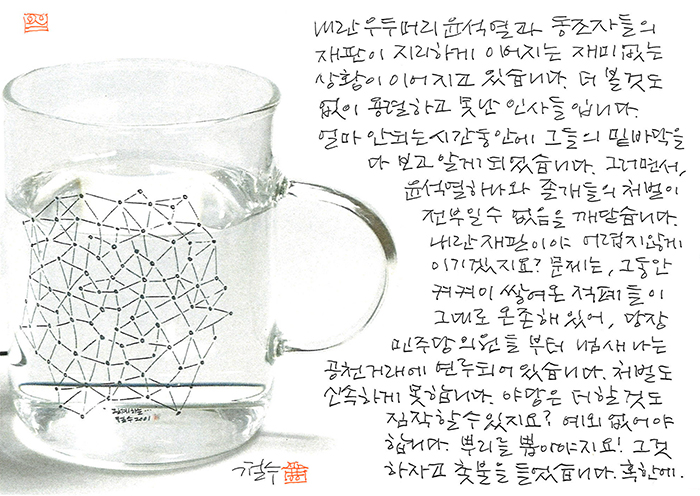 내란 우두머리 윤석열과 동조자들의
재판이 지리하게 이어지는 재미없는
상황이 이어지고 있습니다. 더 볼 것도
없이 용렬하고 못난 인사들입니다.
얼마 안되는 시간동안에 그들의 밑바닥을
다 보고 알게 되었습니다. 그러면서,
윤석열하나와 졸개들의 처벌이
전부일 수 없음을 깨닫습니다.
내란 재판이야 어렵지않게
이기겠지요? 문제는, 그동안
켜켜이 쌓여온 적폐들이
그대로 온존해 있어, 당장
민주당 의원들부터 냄새나는
공천거래에 연루되어 있습니다. 처벌도
신속하게 못합니다. 야당은 더할 것도
짐작할 수 있지요? 예외 없어야
합니다. 뿌리를 뽑아야지요! 그것
하자고 촛불을 들었습니다. 혹한에.
철수